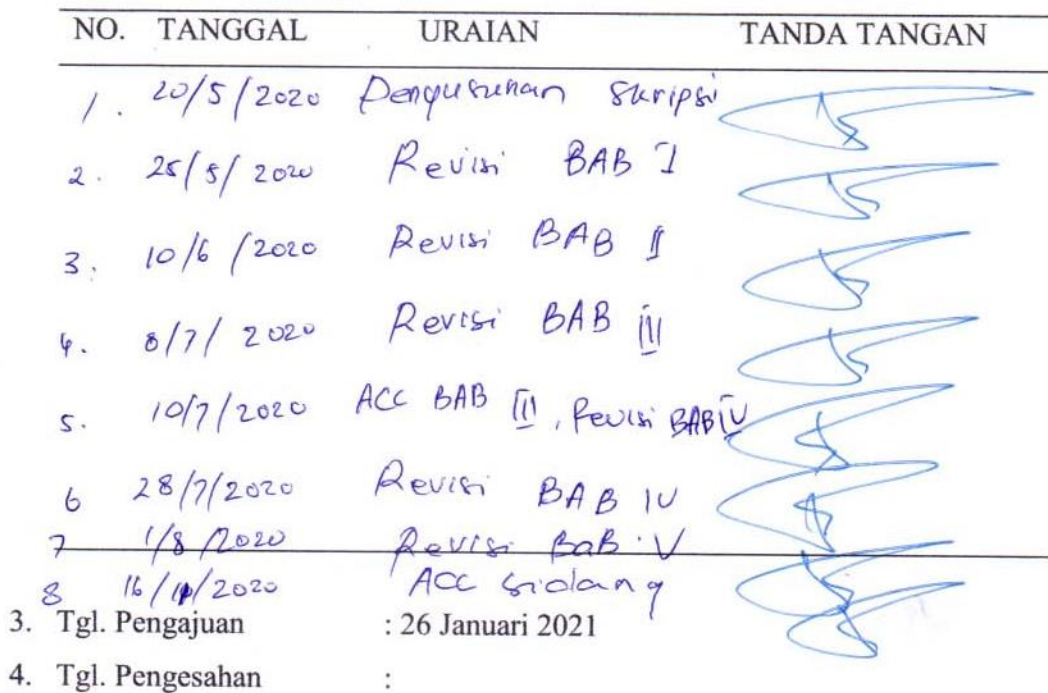 NO. TANGGAL URAIAN TANDA TANGAN
1. 20/5/2020 Penyusunan Skripsi
2. 25/5/2020 Revisi BAB I
3. 10/6/2020 Revisi BAB II
4. 8/7/2020 Revisi BAB III
5. 10/7/2020 ACC BAB III, Revisi BAB IV
6 28/7/2020 Revisi BAB IV
7 1/8/2020 Revisi BaB V
8 ACC sidang
3. Tgl. Pengajuan : 26 Januari 2021
4. Tgl. Pengesahan :